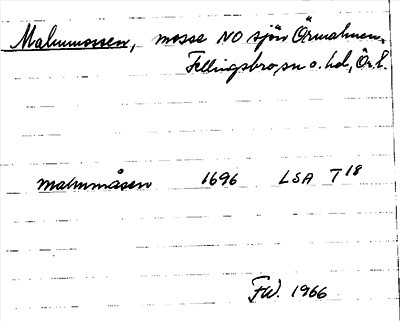 Malmmossen, mosse NO sjön Örmalmen,
Fellingsbro sn o. hd, Ör. l.
Malmmåsen 1696 LSA T 18
FW. 1966